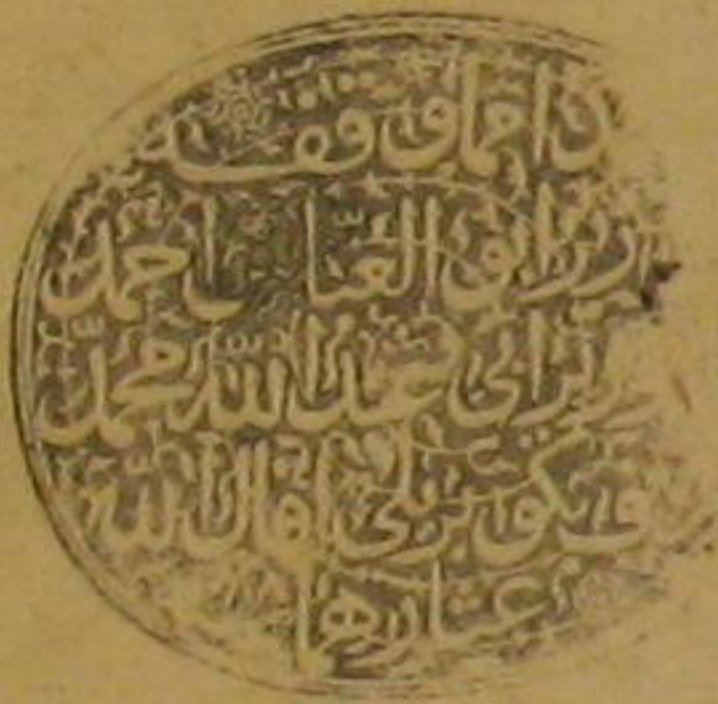 هذا مما وقفه
الوزير ابو العباس احمد
الوزير ابي عبد الله محمد
عرف بكوبريلي اقال الله
عثارهما